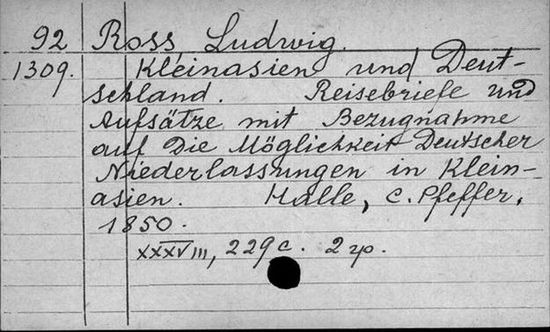 92 Ross, Ludwig.
1309. Kleinasien und Deut-
schland. Reisebriefe und
Aufsätze mit Bezugnahme
auf die Möglichkeit Deutscher
Niederlassungen in Klein-
asien. Halle, C. Pfeffer,
1850.
XXXVIII, 229 с. 2 гр.